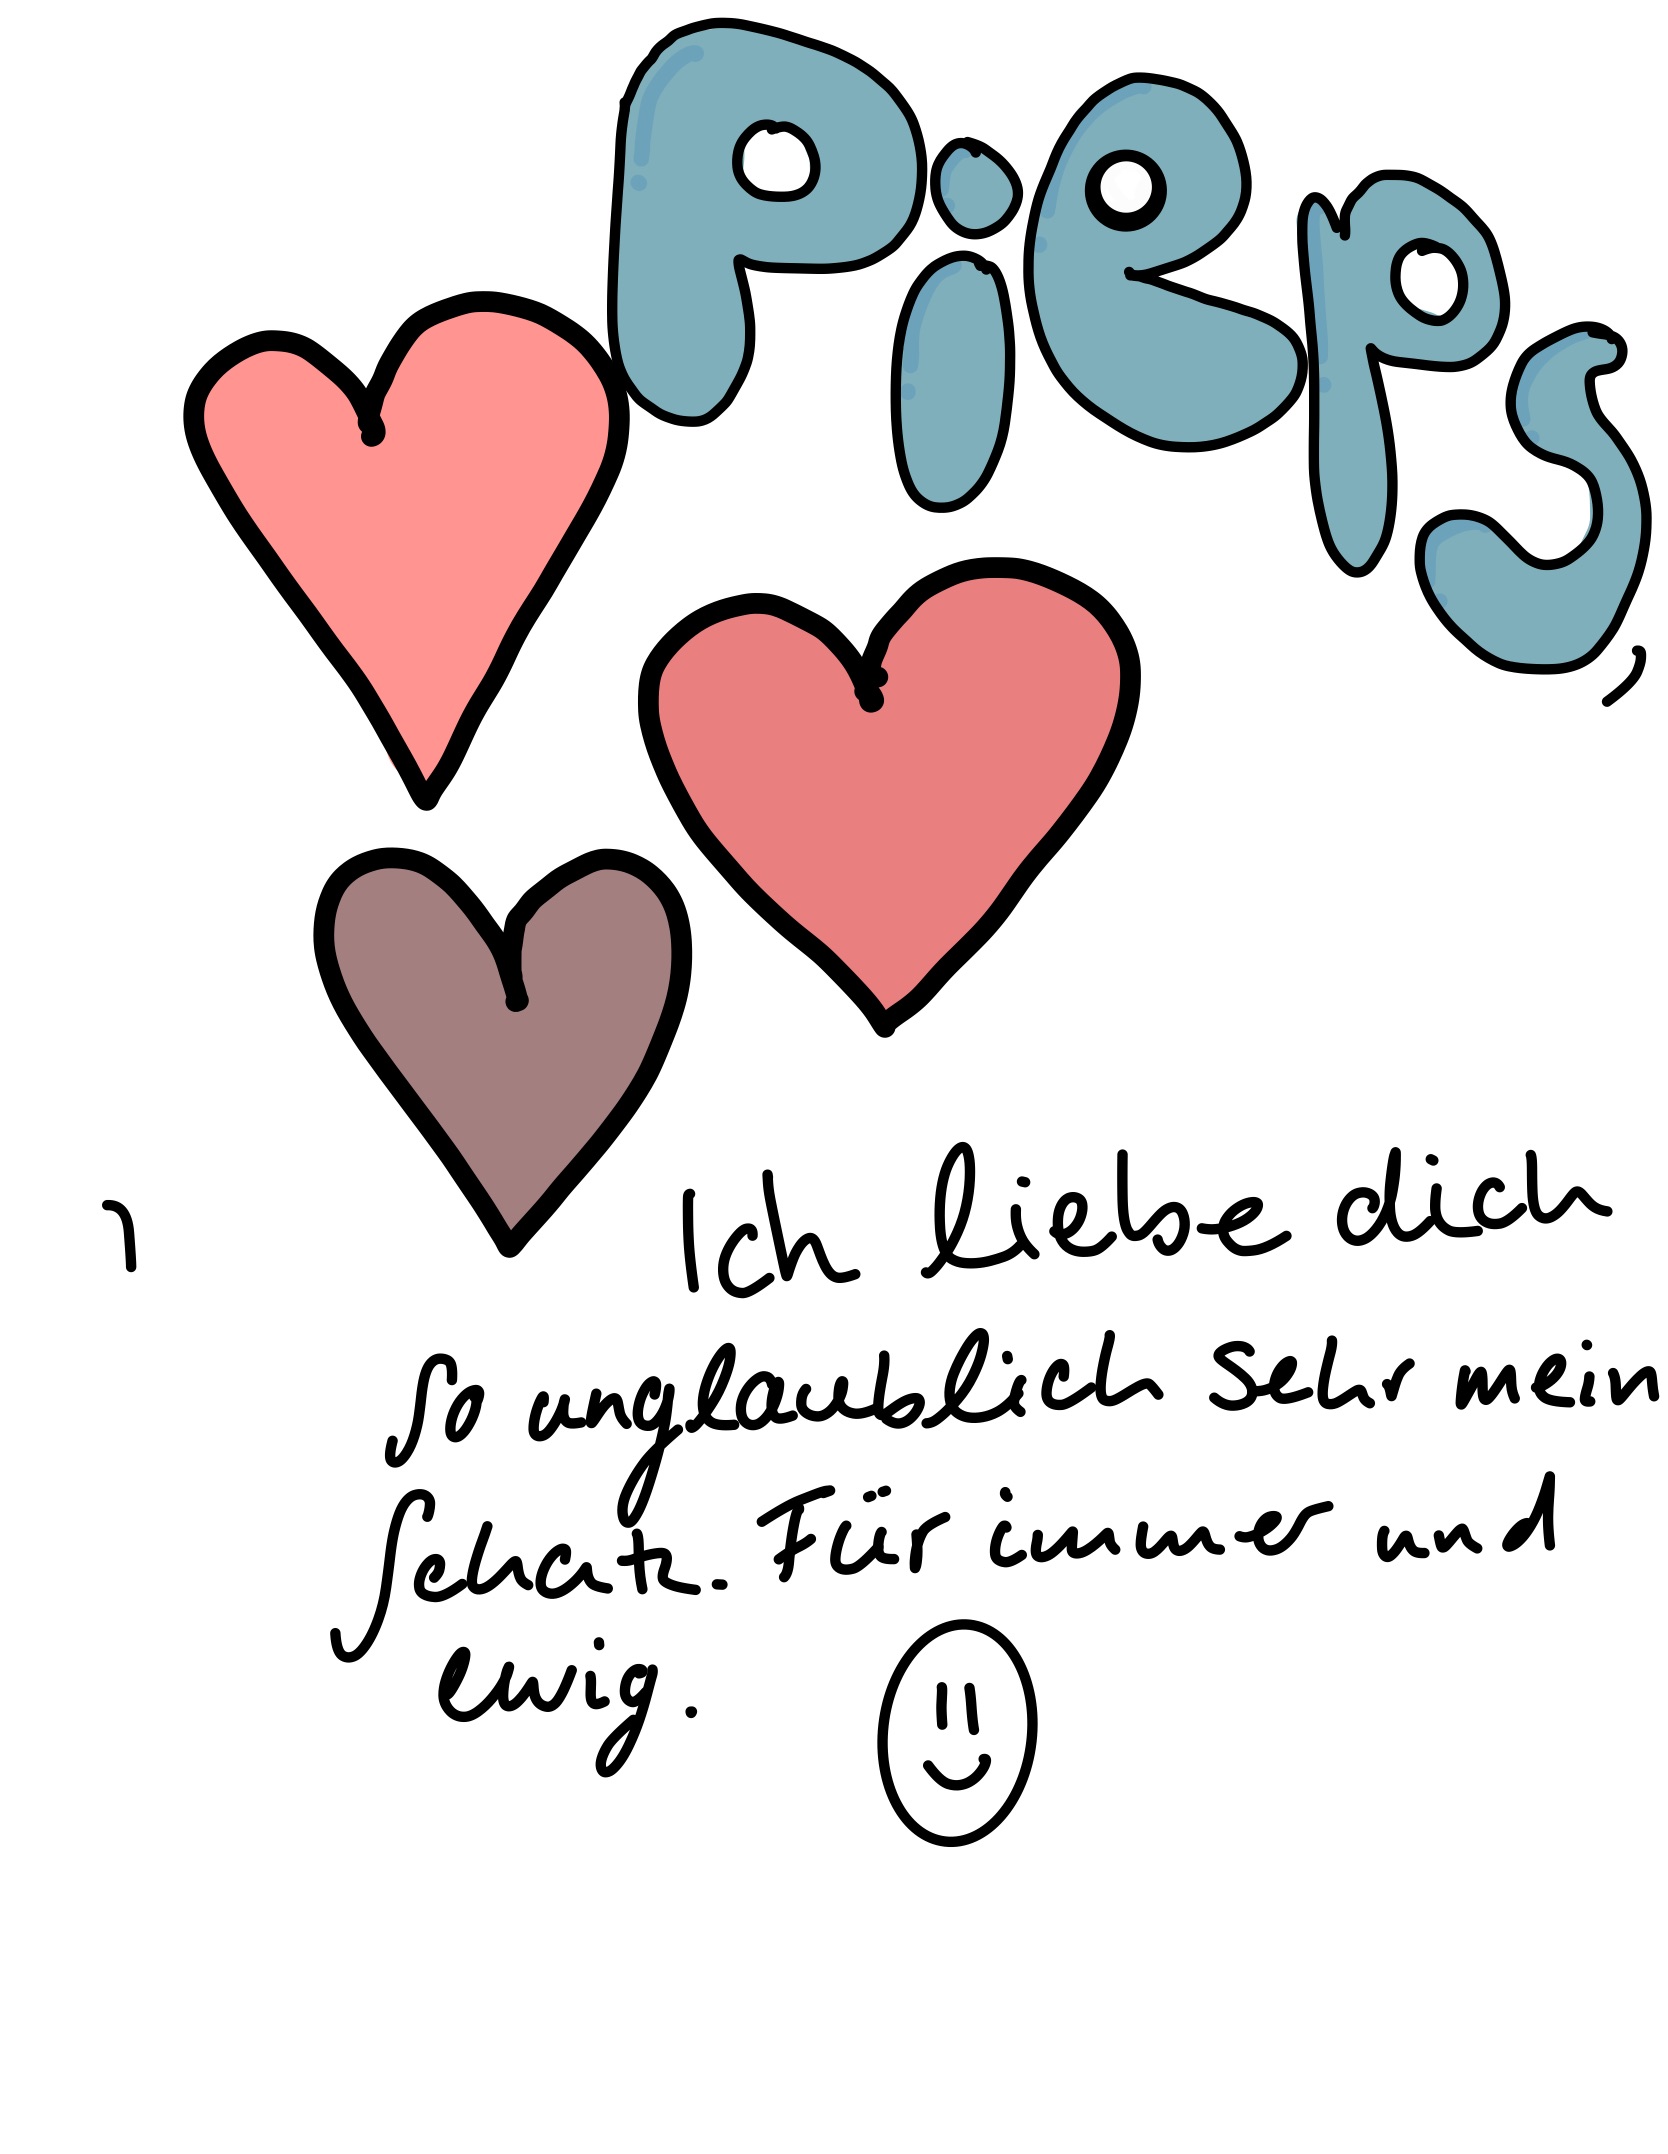 Pieps,
Ich liebe dich
So unglaublich sehr mein
Schatz. Für immer und
ewig.